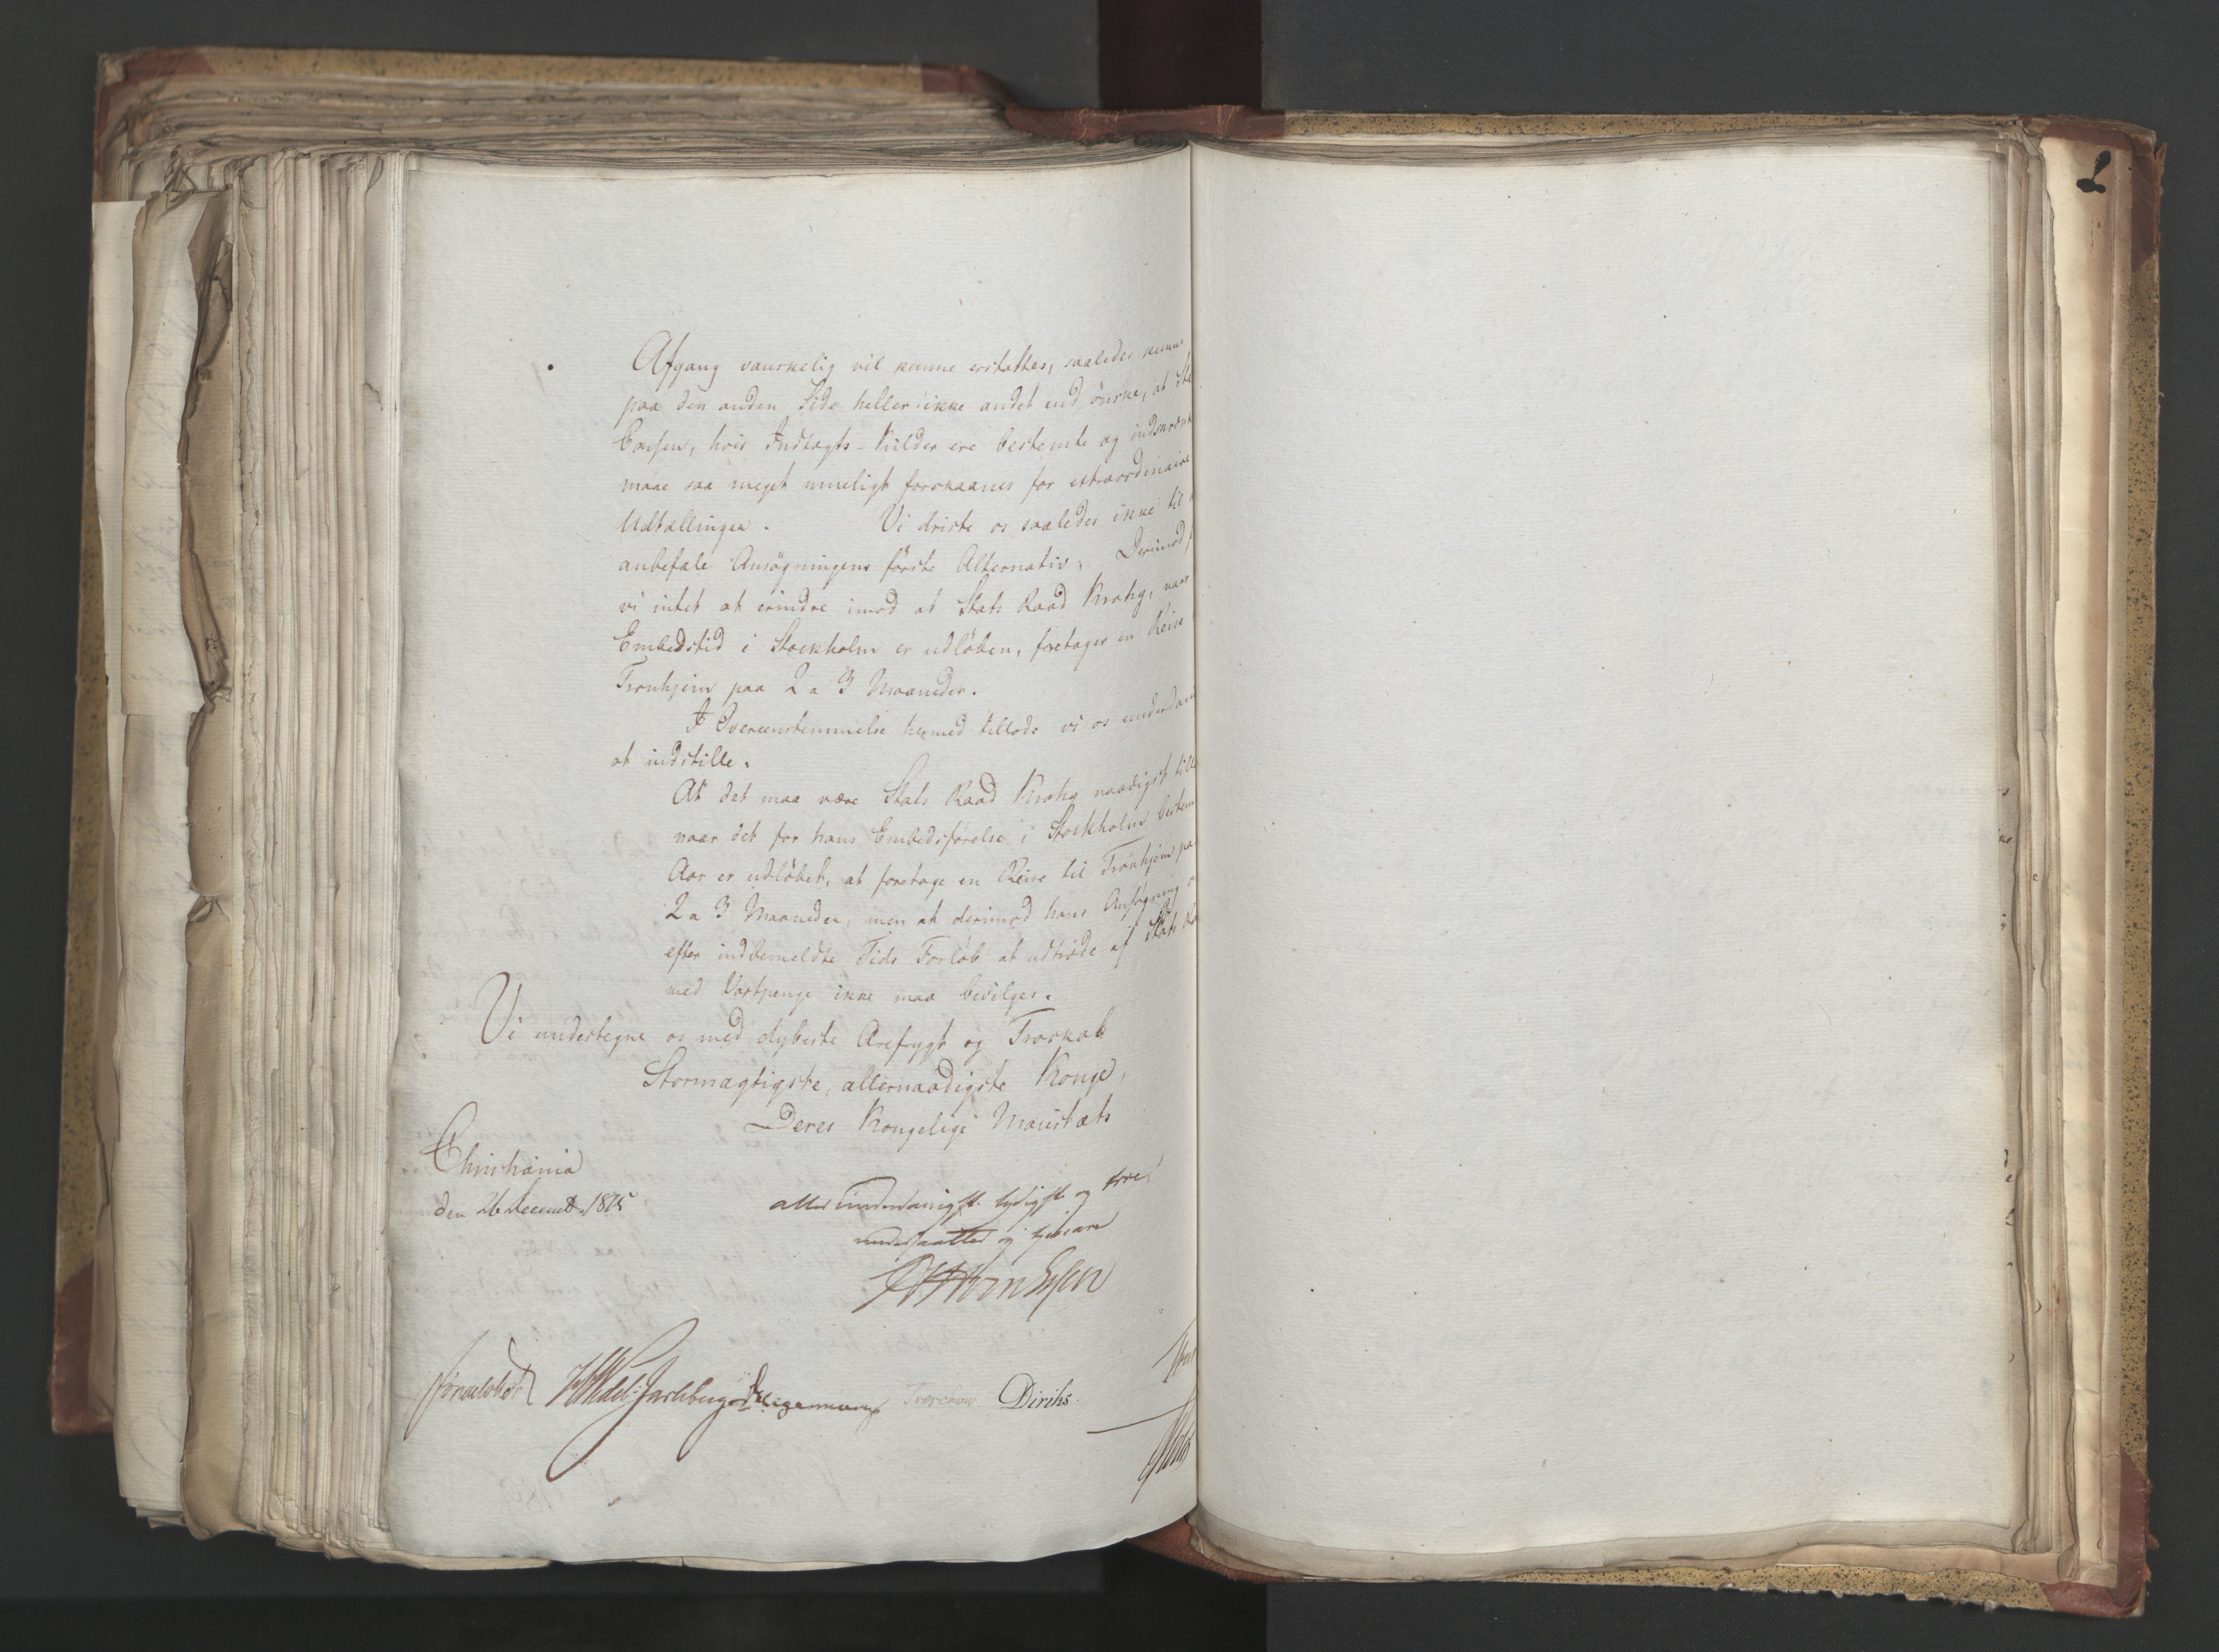 Afgang vanskelig vil kunne erstattes, saaledes kunne
paa den anden Side heller ikke andet end önske, at
Cassen, hvis Indtægts-Kilder ere bestemte og
maae saa meget mueligt forskaanes for extraordinaire
Udtællinger. Vi driste os saaledes ikke til
anbefale Ansögningens förste Alternativ; Derimod
vi intet at erindre imod at Stats Raad Krohg, naar
Embedstid i Stockholm er udlöben, foretager en Reise
Tronhjem paa 2 a 3 Maaneder.
I Overeensstemmelse hermed tillade vi os
at indstille.
At det maa være Stats Raad Krohg naadigst
naar det for hans Embedsförelse i Stockholm
Aar er udlöbet, at foretage en Reise til Tronhjem
2 a 3 Maaneder, men at derimod hans Ansögning
efter indbemeldte Tids Forlöb at udtræde af Stats
med Vartpenge ikke maa bevilges.
Vi undertegne os med dybeste Ærefrygt og Troskab
Stormægtigste, allernaadigste Konge,
Deres Kongelige Maiestæts
Christiania
den 26 Decemb. 1815
allerunderdanigste lydigste og
undersaatter og tjenere
Sommerhielm HWedel Jarlsberg Treschow Diriks